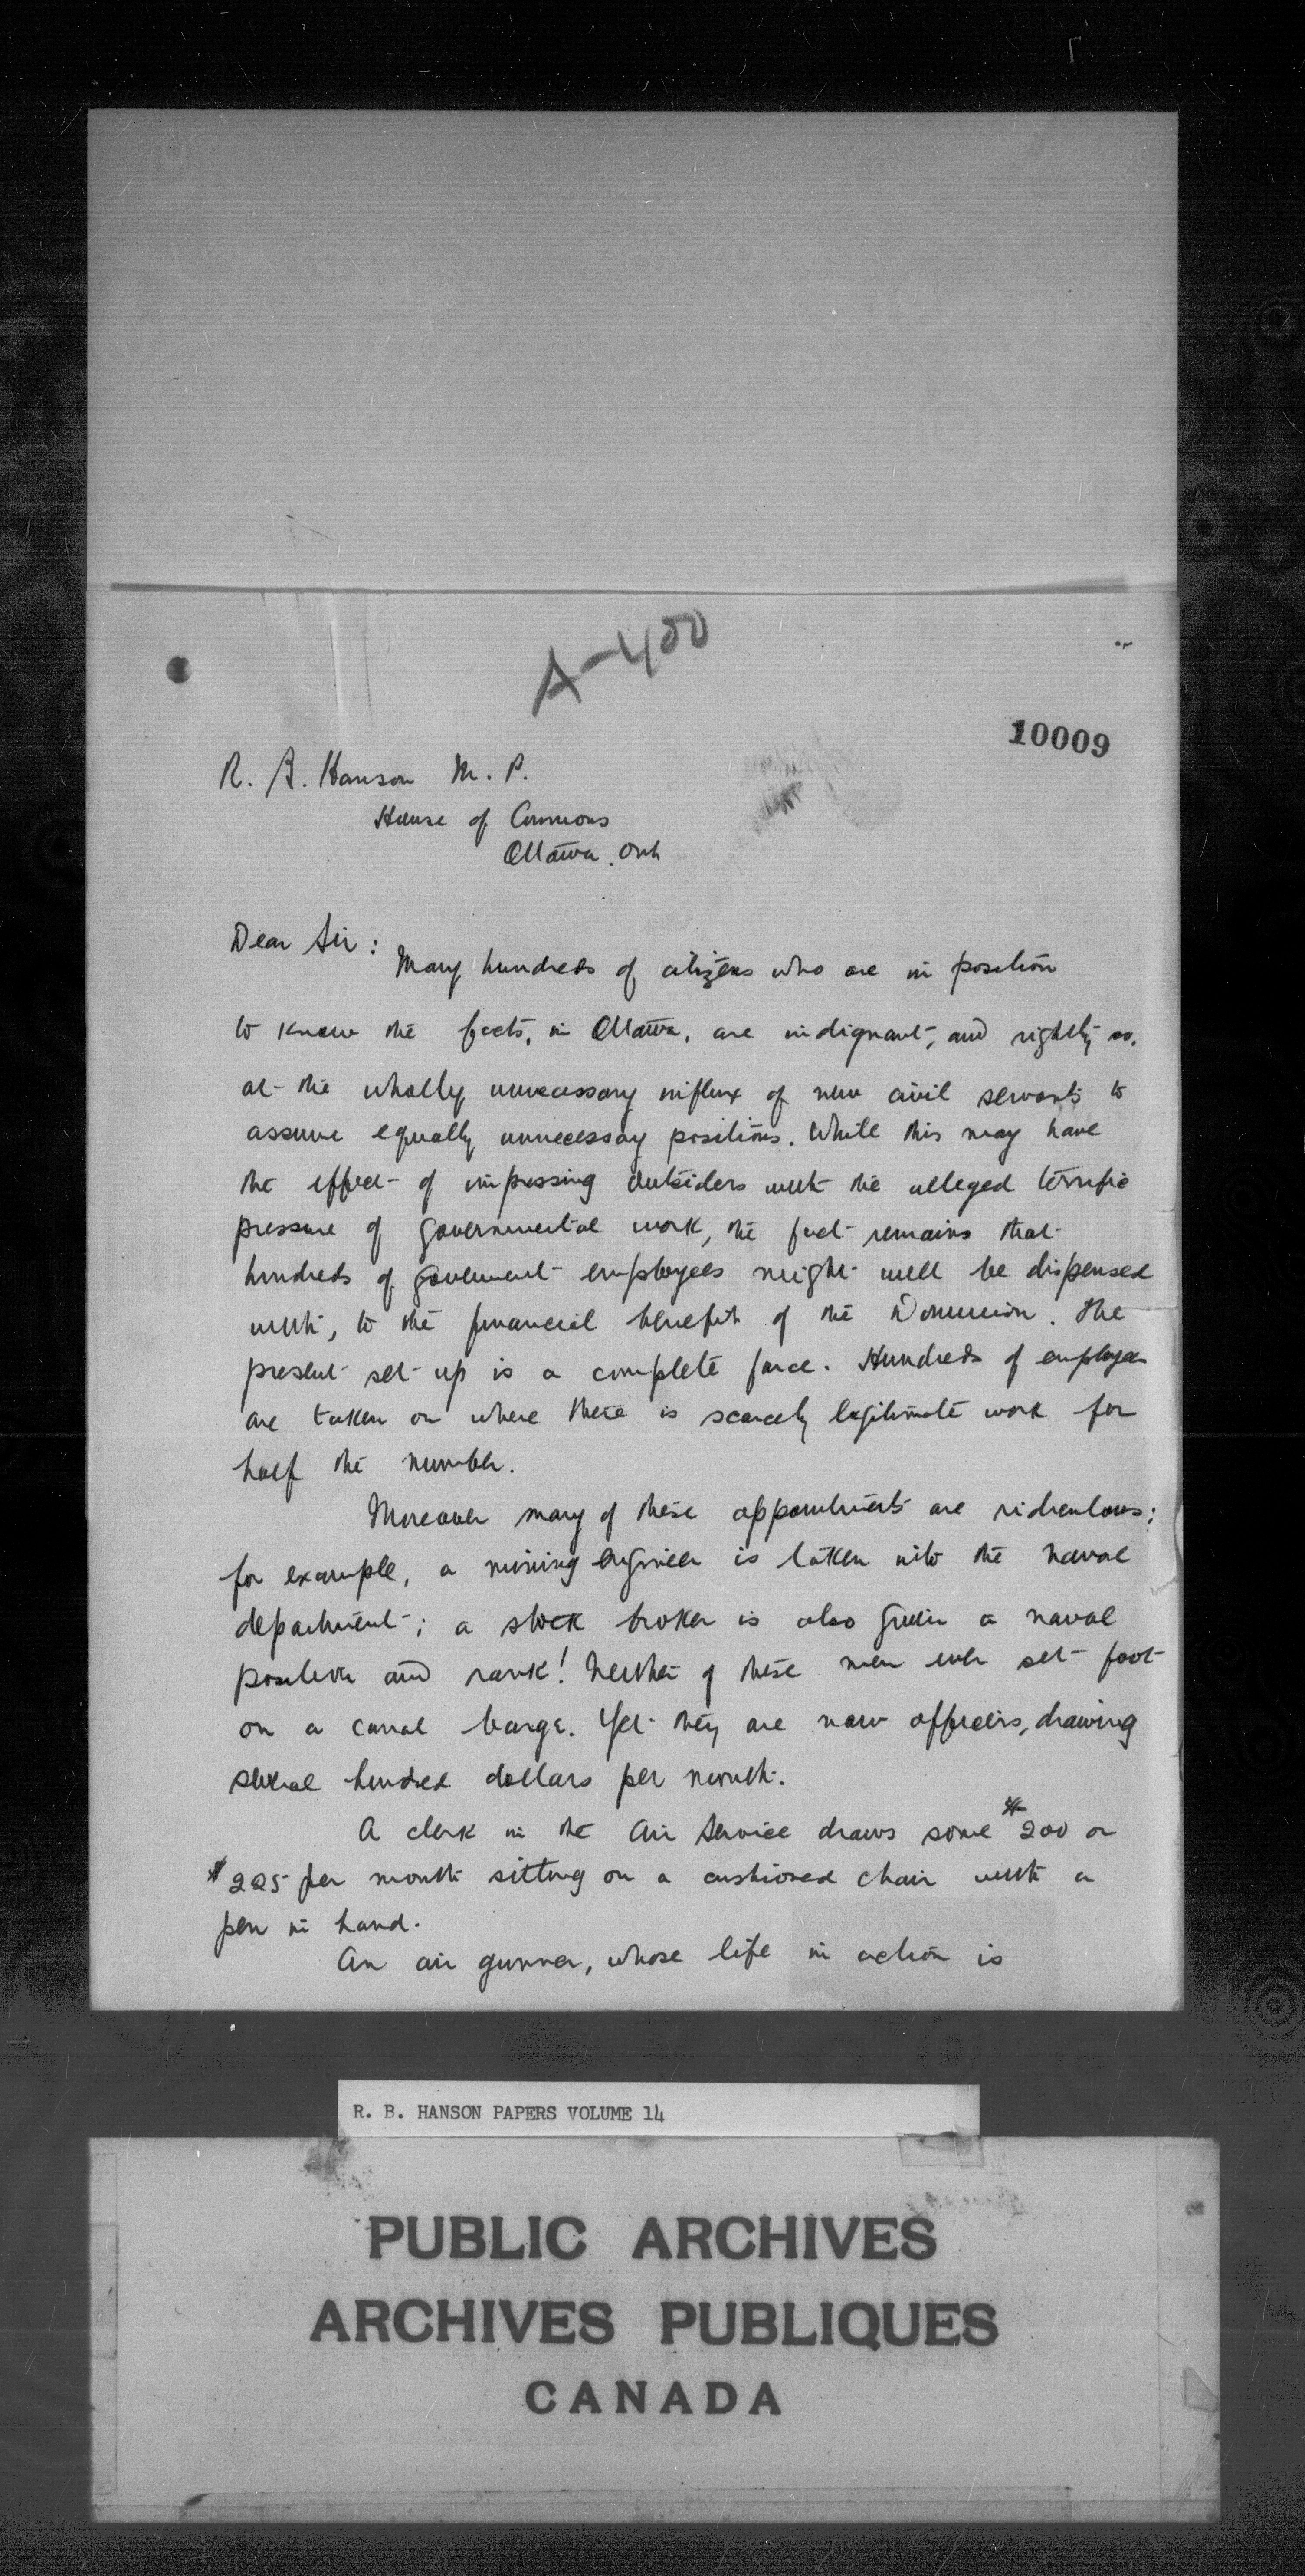 A-400
10009
R. A. Hanson M. P.
House of Commons
Ottawa. Ont
Dear Sir:
Many hundreds of citizens who are in position
to know the facts, in Ottawa, are indignant, and rightly so,
at the wholly unnecessary influx of new civil servants to
assume equally unnecessay positions. While this may have
the effect of impressing outsiders with the alleged terrific
pressure of governmental work, the fact remains that
hundreds of government employees might well be dispensed
with, to the financial benefit of the Dominion. The
present set up is a complete farce. Hundreds of employees
are taken on where there is scarcely legitimate work for
half the number.
Moreover many of these appointments are ridiculous;
for example, a mining engineer is taken into the naval
department; a stock broker is also given a naval
position and rank! Neither of these men ever set foot
on a canal barge. Yet they are now officers, drawing
several hundred dollars per month.
A clerk in the Air Service draws some $200 or
$225 per month sitting on a cushioned chair with a
pen in hand.
An air gunner, whose life in action is
R. B. HANSON PAPERS VOLUME 14
PUBLIC ARCHIVES
ARCHIVES PUBLIQUES
CANADA